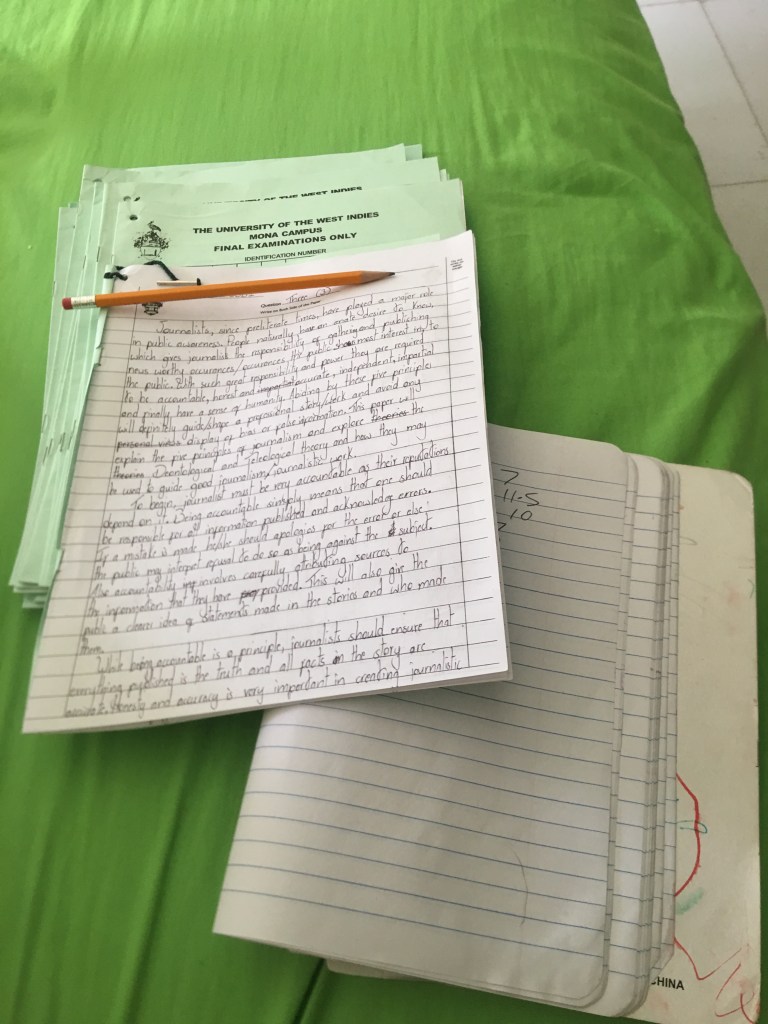 OF THE WEST INDIES
THE UNIVERSITY OF THE WEST INDIES
MONA CAMPUS
FINAL EXAMINATIONS ONLY
IDENTIFICATION NUMBER
Question Three
Write on Both Sides of the Paper
Journalists, since preliterate times, have played a major role
in public awareness. People naturally have an enate desire to know,
which gives journalist the responsibility of gathering and publishing
news worthy occurances/occurences the public has most interest in, to
the public. With such great responsibility and power they are required
to be accountable, honest and accurate, independent, impartial
and finally, have a sense of humanity. Abiding by these five principles
will definitely guide/shape a professional story/work and avoid any
display of bias or false information. This paper will
explain the five principles of journalism and explore the
Deontological and Teleological theory and how they may
be used to guide good journalism/journalistic work.
To begin, journalist must be very accountable as their reputations
depend on it. Being accountable simply means that one should
be responsible for all information published and acknowledge errors.
If a mistake is made he/she should apologies for the error or else,
the public may interpret refusal to do so as being against the subject.
accountability involves carefully attributing sources to
the information that they have provided. This will also give the
public a clearer idea of statements made in the stories and who made
them.
While being accountable is a principle, journalists should ensure that
everything published is the truth and all facts in the story are
accurate. Honesty and accuracy is very important in creating journalistic
7
11-5
10
7
CHINA